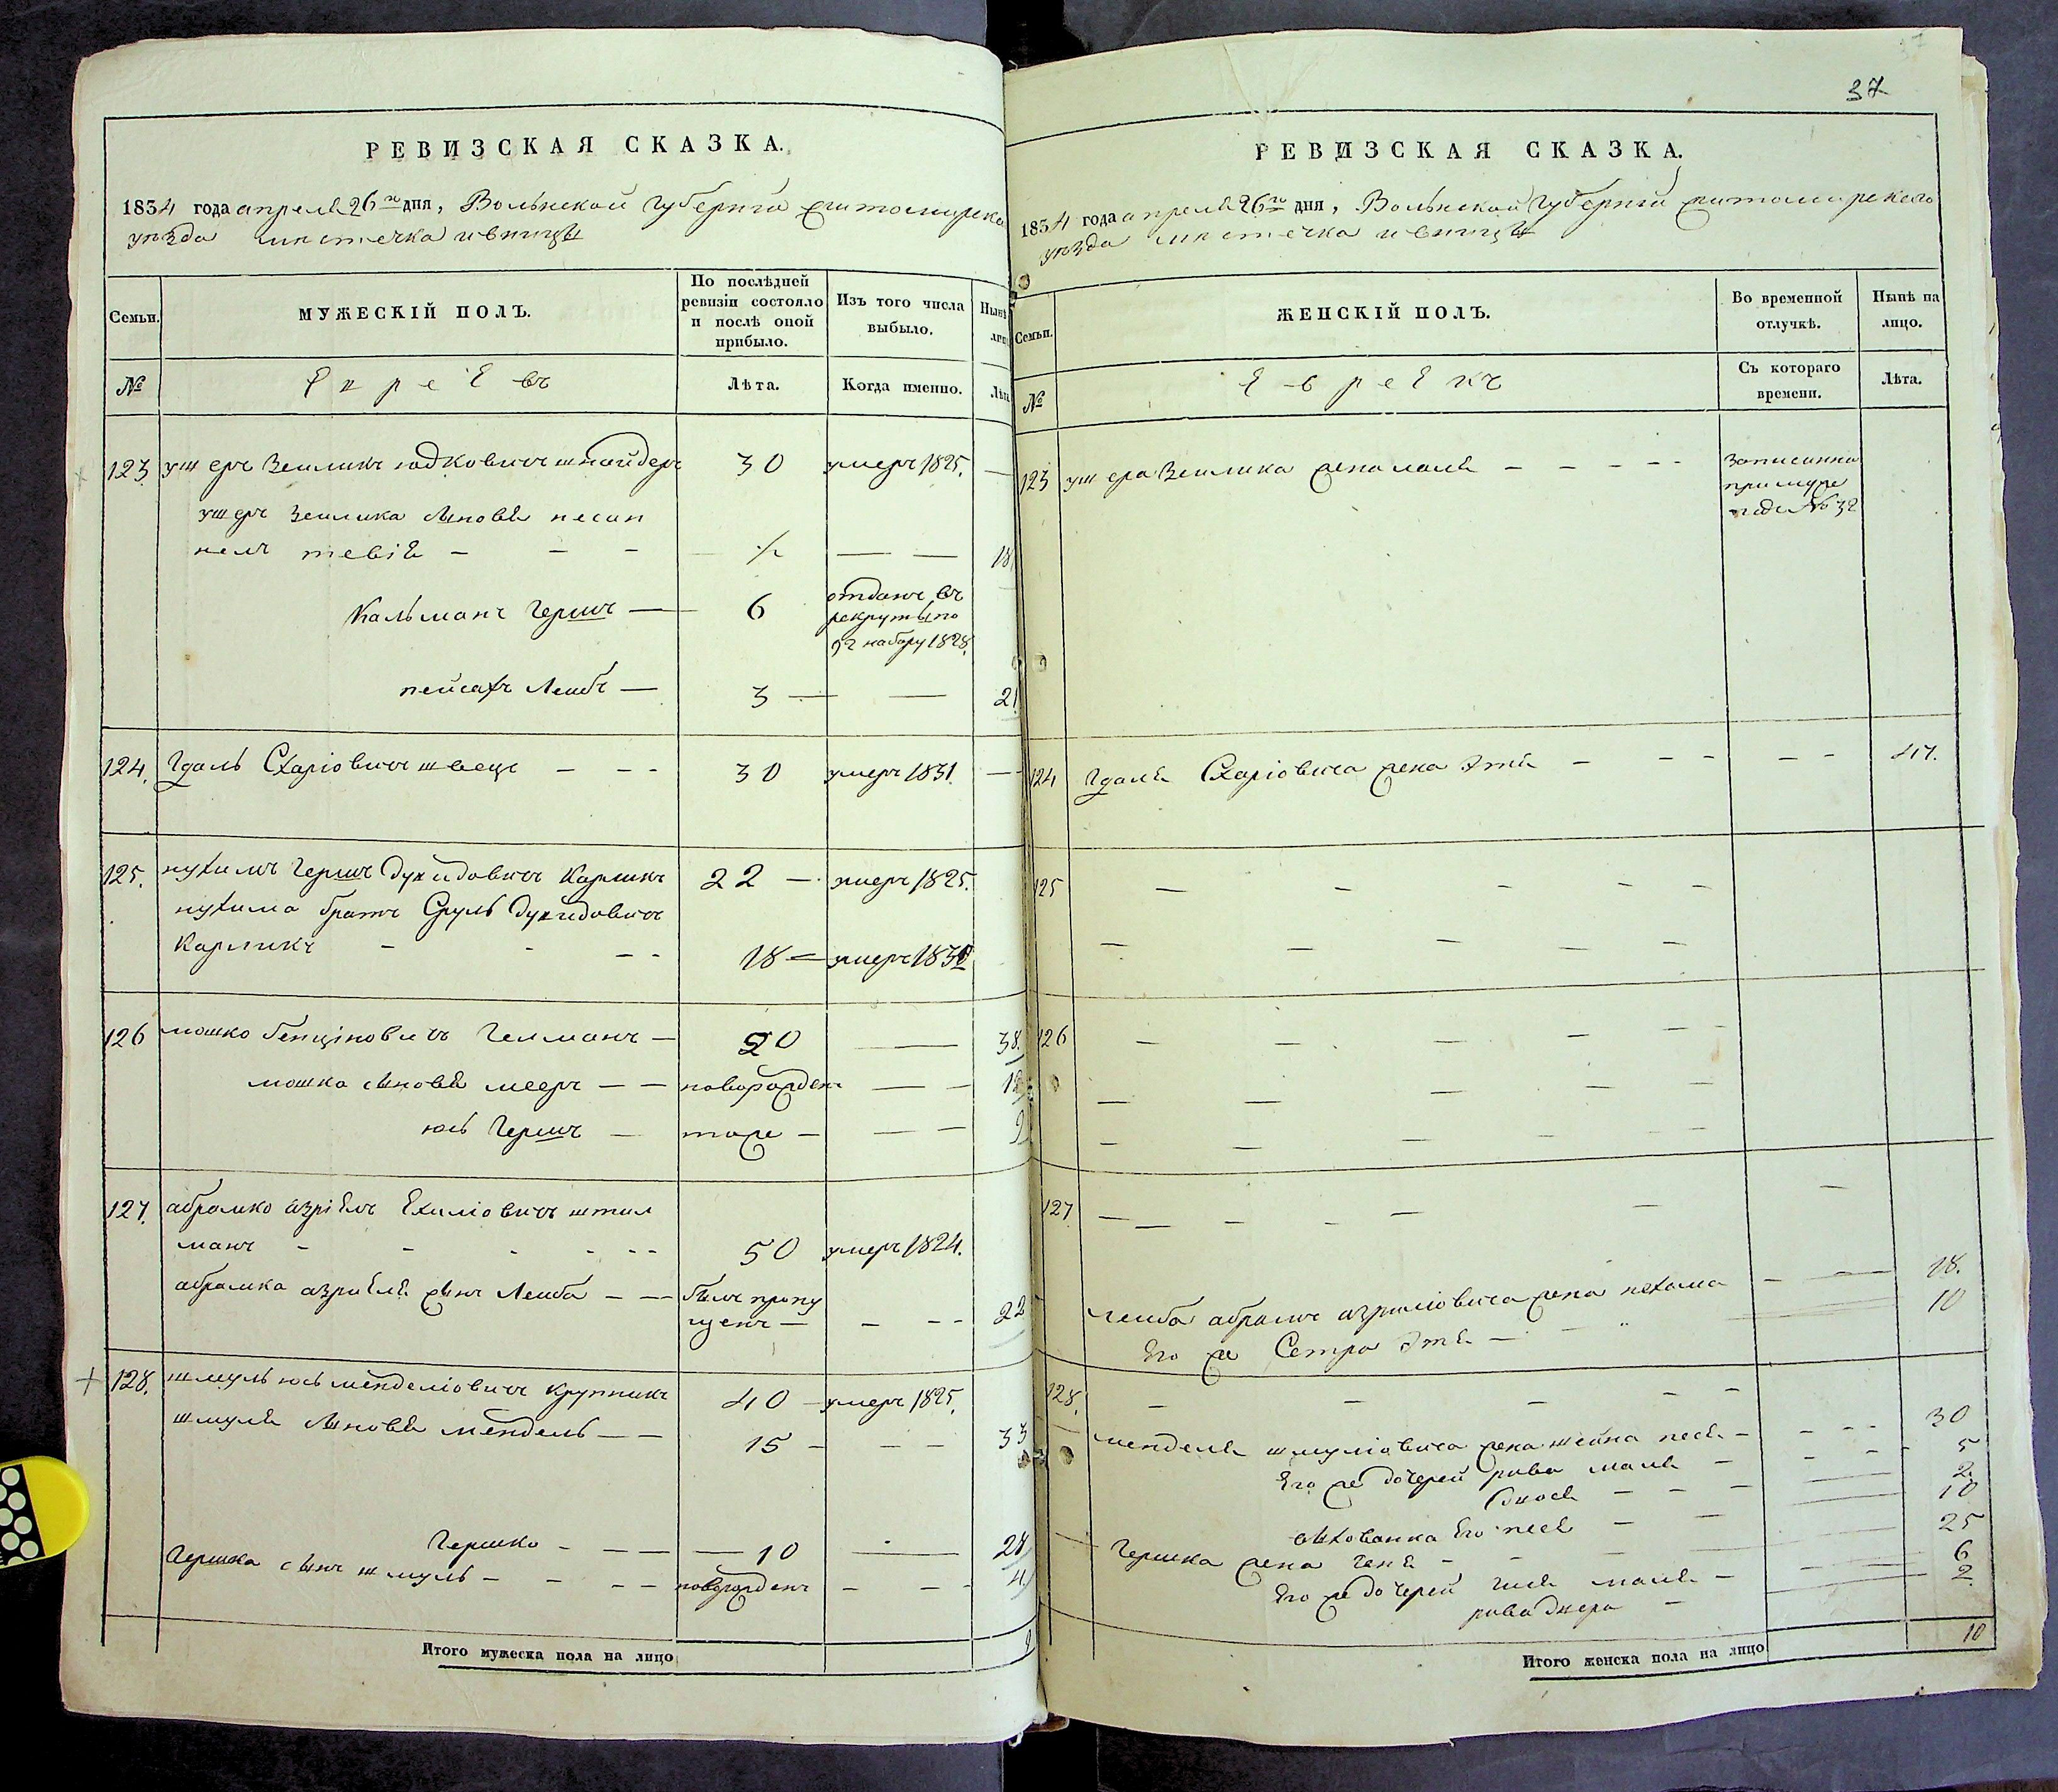 РЕВИЗСКАЯ СКАЗКА.
1834 года апреля 26го дня, Волынской губернiи житомирска
уѣзда мѣстечка ивницы
Семьи.
МУЖЕСКІЙ ПОЛЪ.
По послѣдней ревизіи состояло и послѣ оной прибыло.
Изъ того числа выбыло.
Нынѣ
№
Евреевъ
Лѣта.
Когда именно.
Лѣта
123 ушеръ Зеиликъ юдковичъ шнайдеръ 30 умеръ 1825. —
ушеръ Зеилика сыновья
тевiе - - - — — 18
Кальманъ Гершъ — 6 отданъ въ рекруты по 92 набору 1828.
пейсахъ Лейбъ — 3 — — 21
124. Гдаль Схарiовичъ швецъ - - - 30 умеръ 1831. —
125. нухимъ Гершъ Карликъ 22 — умеръ 1825.
нухима братъ Сруль
Карликъ - - - - 18 — умеръ
126 мошко бенцiновичъ Гелманъ — 20 —— 38.
мошка сыновья мееръ — — новорожденъ — —
юсь Гершъ — тоже — — — 9
127. абрамко азрiелъ Ехилiовичъ штил
манъ - - - - - - 50 умеръ 1824.
абрамка азриеля сынъ Лейба — — былъ пропу
щенъ — - - - 22
128. шмуль юсь менделiовичъ крупникъ 40 — умеръ 1825.
шмуля сыновья мендель — — 15 - - - 33
Гершко - — — — 10 —— 28
Гершка сынъ шмуль - - - — новорожденъ - - - 4.
Итого мужеска пола на лицо 9
37
РЕВИЗСКАЯ СКАЗКА.
1834 года апреля 26го дня, Волынской губернiи житомирскаго
уѣзда мѣстечка ивницы
Семьи.
ЖЕНСКІЙ ПОЛЪ.
Во временной отлучкѣ.
Нынѣ на лицо.
№
Евреекъ
Съ котораго времени.
Лѣта.
123 ушера Зеилика жена маля - - - - - Записанна при муже подъ № 32
124 Гдаля Схарiовича жена Этя - - - - - 47.
125 — — — — —
— — — — —
126 — — — — — —
— — — — —
— — — — — —
127 — — — — — — —
лейба абрамъ азрилiовича жена нехама - — 18.
Его же Сестра Этя - - — 10
128. — — — — —
менделя шмулiовича жена шейна песя - - - - 30
Его же дочерей рива маля - - - 5
Двося - - - — 2.
его песя - - — 10
Гершка жена Геня - - - — 25
Его же дочерей маля - — 6
рива двера - — 2.
Итого женска пола на лицо 10